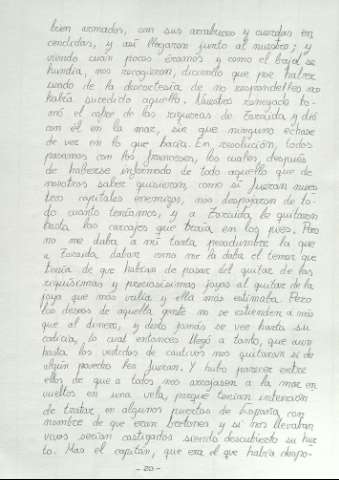 bien armados, con sus arcabuces y cuerdas en-
cendidas, y así llegaron junto al nuestro; y
viendo cuan pocos éramos y como el bajel se
hundía, nos recogieron, diciendo que por haber
usado de la descortesía de no respondelles nos
había sucedido aquello. Nuestro renegado to-
mó el cofre de las riquezas de Zoraida y dio
con él en la mar, sin que ninguno echase
de ver en lo que hacía. En resolución, todos
pasamos con los franceses, los cuales después
de haberse informado de todo aquello que de
nosotros saber quisieron, como si fueran nues-
tros capitales enemigos, nos despojaron de to-
do cuanto teníamos, y a Zoraida le quitaron
hasta los carcajes que traía en los pies. Pero
no me daba a mí tanta pesadumbre la que
a Zoraida daban como me la daba el temor que
tenía de que habían de pasar del quitar de las
riquísimas y preciosísimas joyas al quitar de la
joya que más valía y ella más estimaba. Pero
los deseos de aquella gente no se estienden a más
que al dinero, y desto jamás se vee harta su
codicia, lo cual entonces llegó a tanto, que aun
hasta los vestidos de cautivos nos quitaran si de
algún provecho les fueran. Y hubo parecer entre
ellos de que a todos nos arrojasen a la mar en-
vueltos en una vela, porque tenían intención
de tratar en algunos puertos de España con
nombre de que eran bretones y si nos llevaban
vivos serían castigados siendo descubierto su hur-
to. Mas el capitán, que era el que había despo-
- 20 -